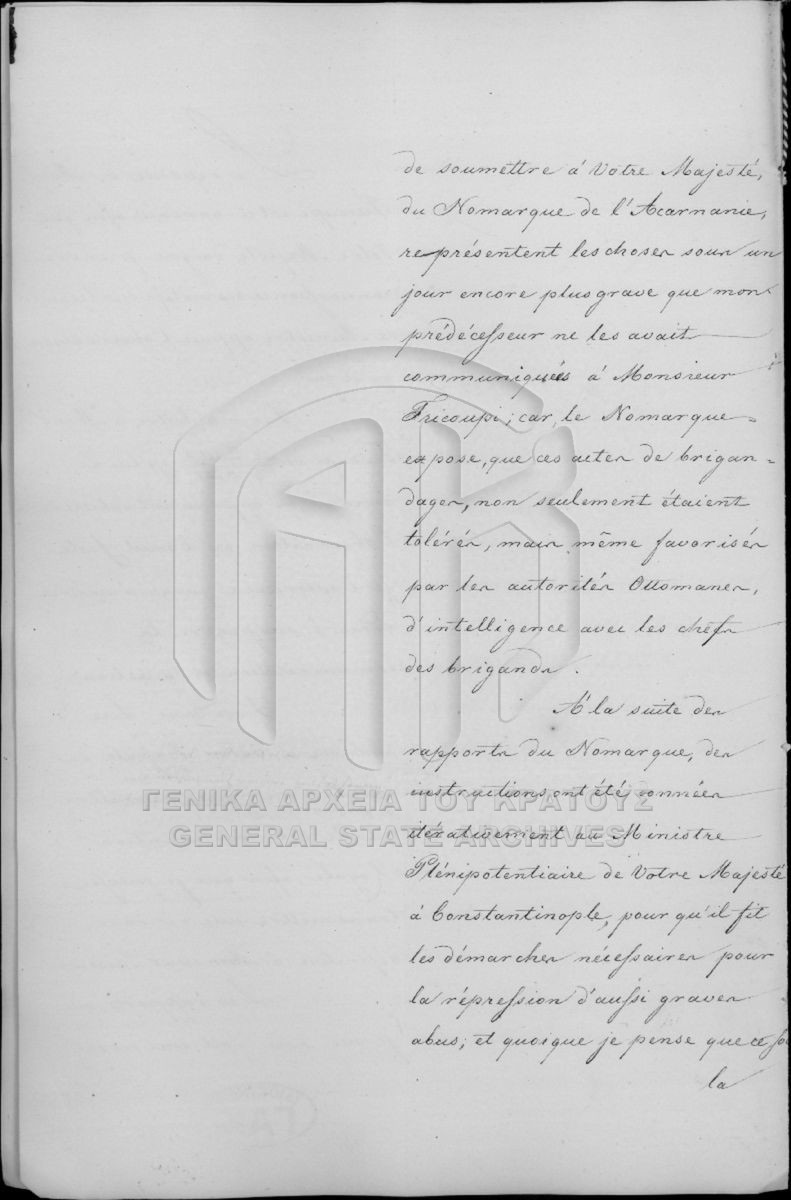 de soumettre à Votre Majesté,
du Nomarque de l'Acarnanie,
représentent les choses sous un
jour encore plus grave que mon
prédécesseur ne les avait
communiqués à Monsieur
Tricoupi; car, le Nomarque
expose, que ces actes de brigan=
dages, non seulement étaient
tolérés, mais même favorisés
par les autorités Ottomanes,
d'intelligence avec les chefs
des brigands.
A la suite des
rapports du Nomarque, des
instructions ont été données
itérativement au Ministre
Plénipotentiaire de Votre Majesté
à Constantinople, pour qu'il fit
les démarches nécessaires pour
la répression d'aussi graves
abus; et quoique je pense que ce
la
ΓΕΝΙΚΑ ΑΡΧΕΙΑ ΤΟΥ ΚΡΑΤΟΥΣ
GENERAL STATE ARCHIVES